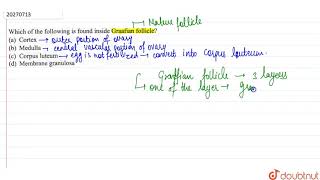 20270713
→ Mature follicle
Which of the following is found inside Graafian follicle?
(a) Cortex → outer portion of ovary
(b) Medulla → central vascular portion of ovary
(c) Corpus luteum → egg is not fertilized → converts into corpus luteum.
(d) Membrane granulosa
Graffian follicle → 3 layers
→ one of the layer → gra
doubtnut